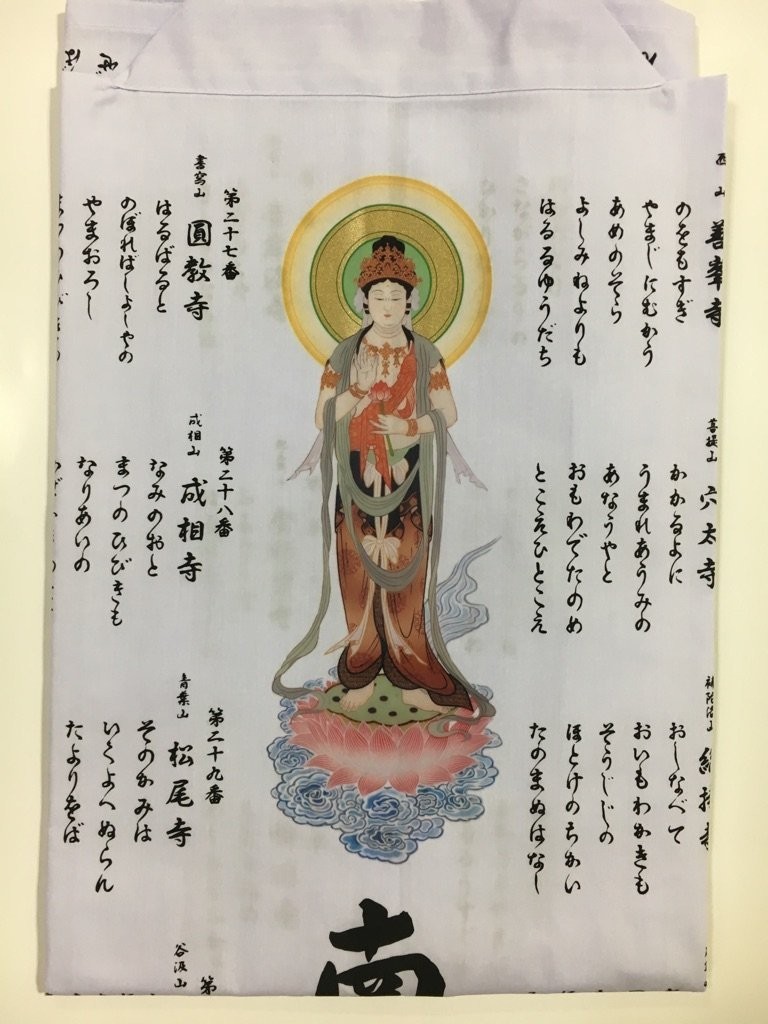 西山 善峯寺
のをもすぎ
やまじにむかう
あめのそら
よしみねよりも
はるるゆうだち
菩提山 穴太寺
かかるよに
うまれあうみの
あなうやと
おもわでたのめ
とこえひとこえ
おしなべて
おいもわかきも
そうじじの
ほとけのちかい
たのまぬはなし
第二十七番
書寫山 圓教寺
はるばると
のぼればしょしゃの
やまおろし
第二十八番
成相山 成相寺
なみのおと
まつのひびきも
なりあいの
第二十九番
青葉山 松尾寺
そのかみは
いくよへぬらん
たよりをば
南
第
谷汲山